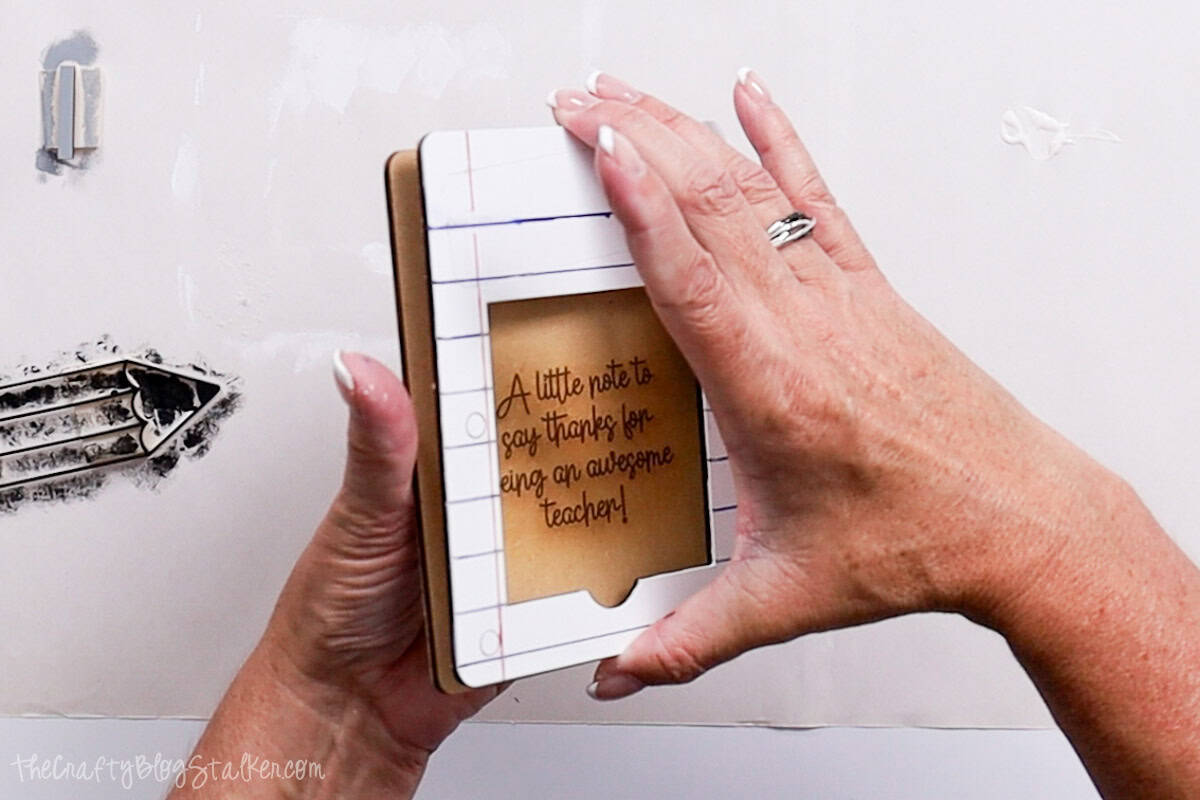 A little note to
say thanks for
eing an awesome
teacher!
TheCraftyBlogStalker.com